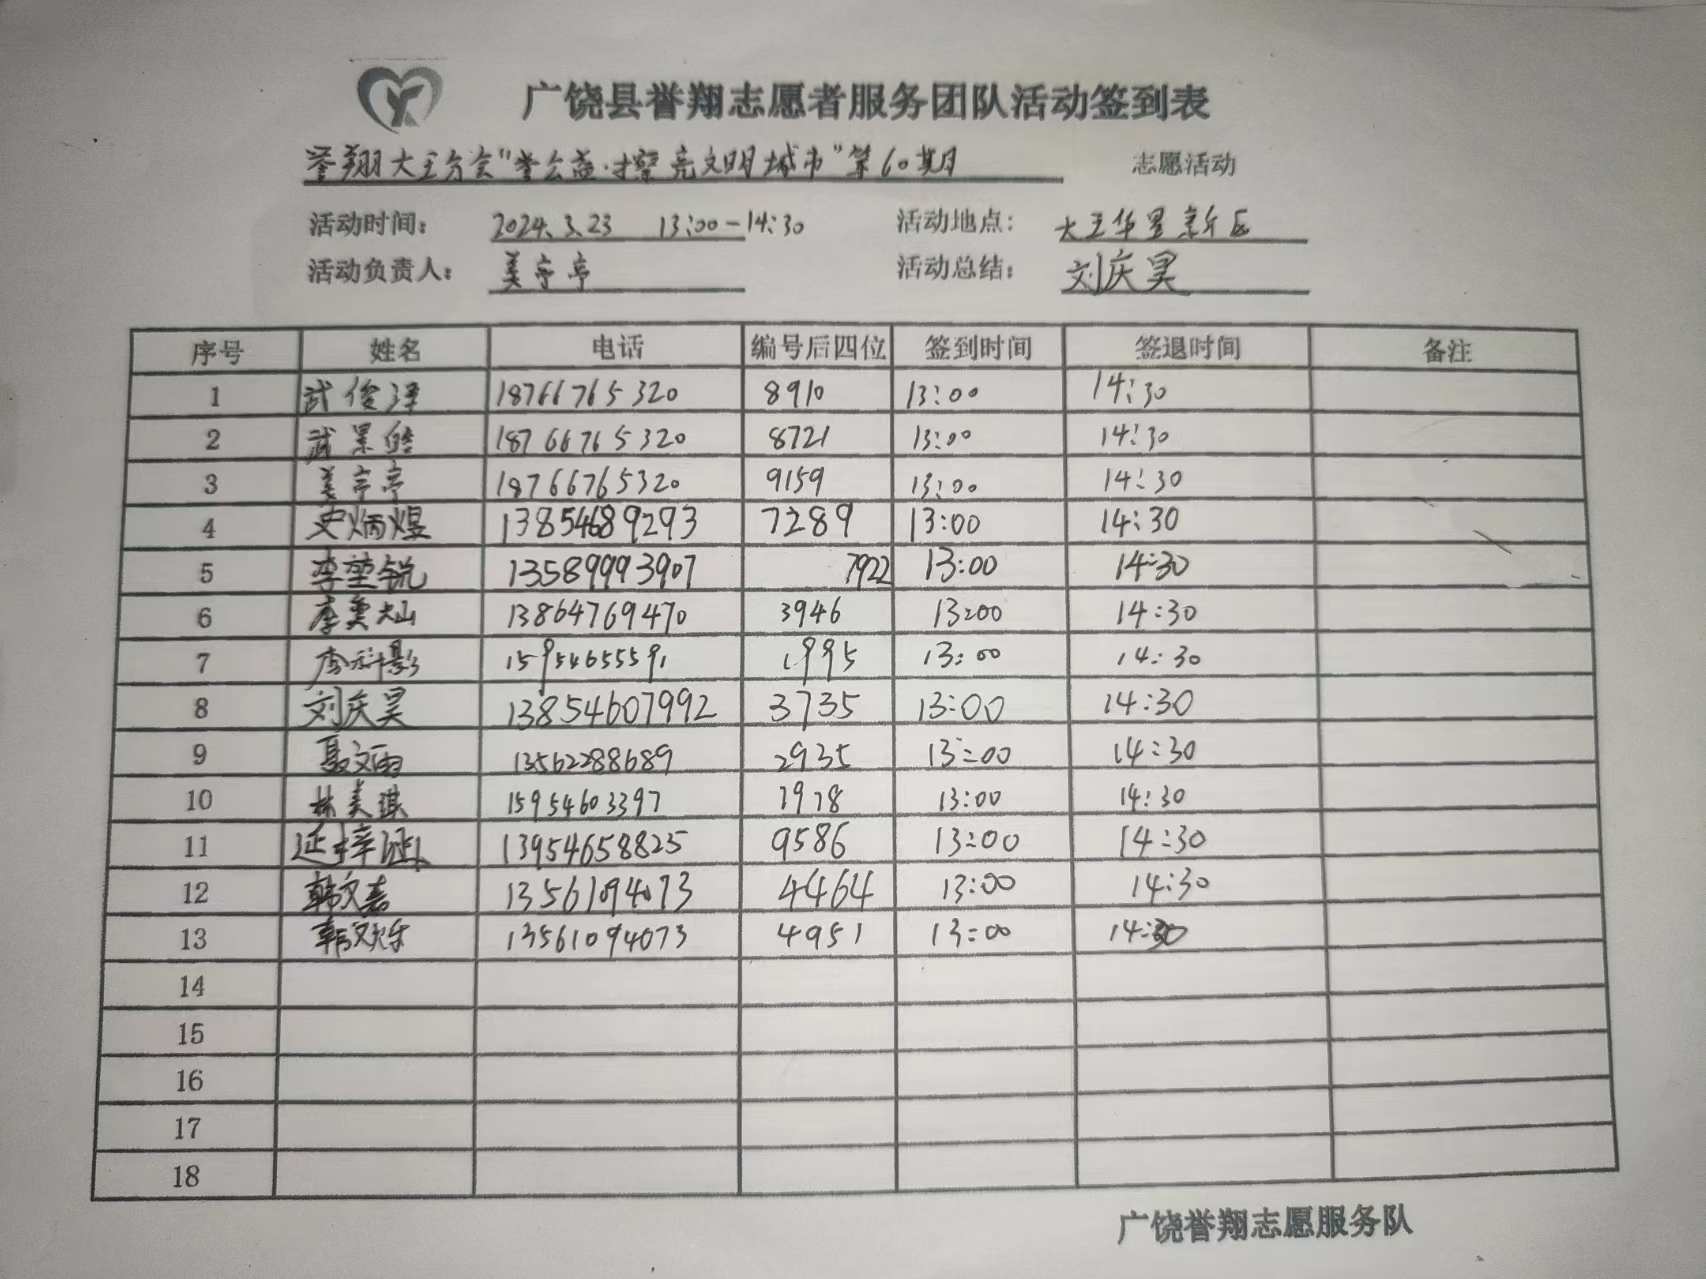 广饶县誉翔志愿者服务团队活动签到表
誉翔大王分会"誉公益·擦亮文明城市"第60期 志愿活动
活动时间: 2024.3.23 13:00-14:30 活动地点: 大王华星新区
活动负责人: 姜亭亭 活动总结: 刘庆昊
序号 姓名 电话 编号后四位 签到时间 签退时间 备注
1 武俊泽 18766765320 8910 13:00 14:30
2 武景皓 18766765320 8721 13:00 14:30
3 姜亭亭 18766765320 9159 13:00 14:30
4 史炳煜 13854689293 7289 13:00 14:30
5 李堃锐 13589993907 7922 13:00 14:30
6 李奕灿 13864769470 3946 13:00 14:30
7 李科影 15954655591 1995 13:00 14:30
8 刘庆昊 13854607992 3735 13:00 14:30
9 聂文雨 13562288689 2935 13:00 14:30
10 林美琪 15954603397 1978 13:00 14:30
11 延梓涵 13954658825 9586 13:00 14:30
12 韩文嘉 13561094073 4464 13:00 14:30
13 韩文烁 13561094073 4951 13:00 14:30
14
15
16
17
18
广饶誉翔志愿服务队